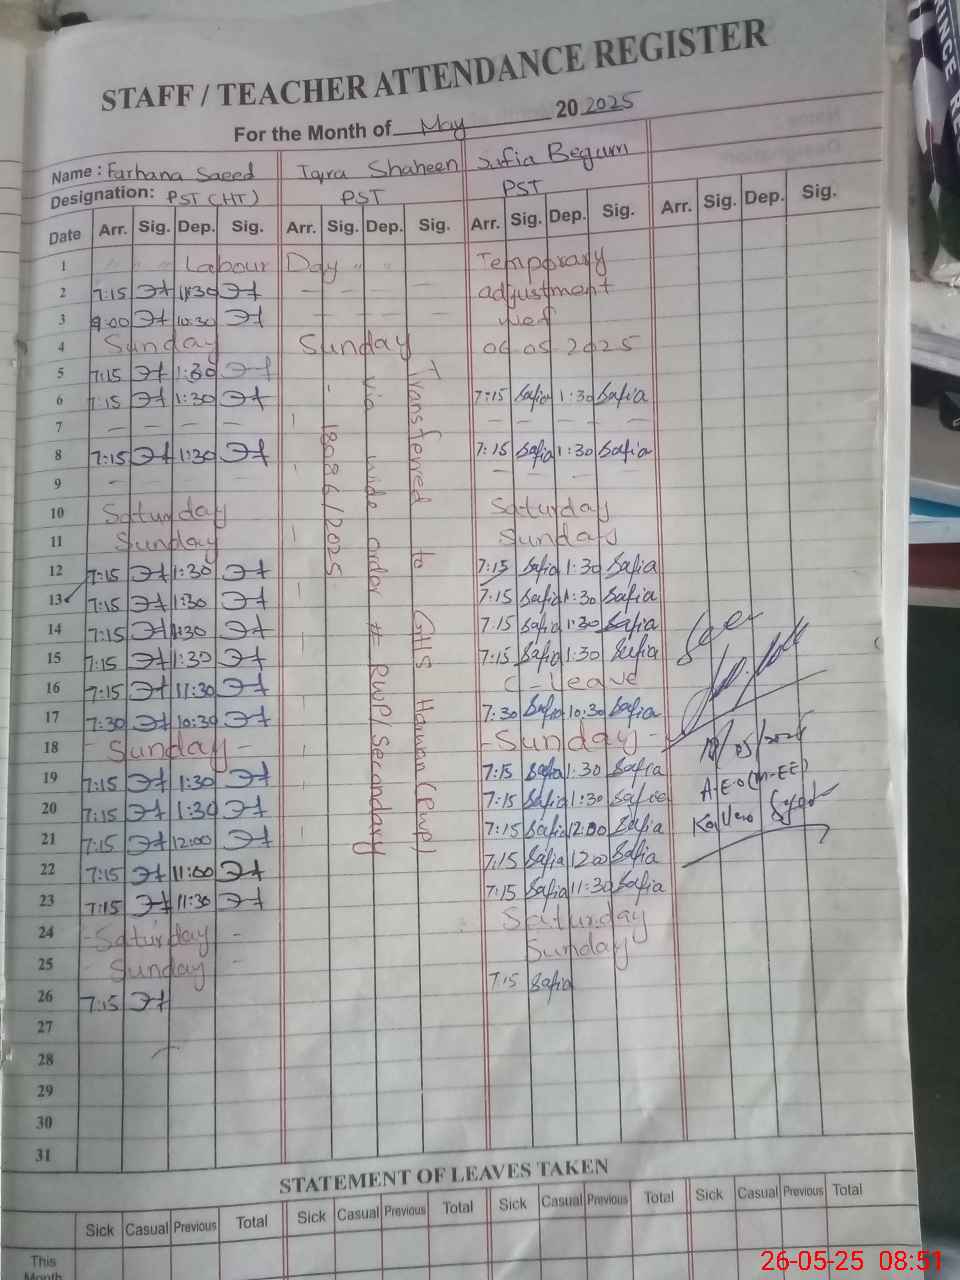 STAFF / TEACHER ATTENDANCE REGISTER
For the Month of May 20 2025
Name : Farhana Saeed Iqra Shaheen Safia Begum
Designation: PST (HT) PST PST
Date Arr. Sig. Dep. Sig. Arr. Sig. Dep. Sig. Arr. Sig. Dep. Sig. Arr. Sig. Dep. Sig.
1 Labour Day Temporary
2 7:15 11:30 adjustment
3 9:00 10:30 wef
4 Sunday Sunday 06 05 2025
5 7:15 1:30
6 7:15 1:30 7:15 Safia 1:30 Safia
7
8 7:15 1:30 7:15 Safia 1:30 Safia
9
10 Saturday Saturday
11 Sunday Sunday
12 7:15 1:30 7:15 Safia 1:30 Safia
13 7:15 1:30 7:15 Safia 1:30 Safia
14 7:15 1:30 7:15 Safia 1:30 Safia
15 7:15 1:30 7:15 Safia 1:30 Safia
16 7:15 11:30 C-leave
17 7:30 10:30 7:30 Safia 10:30 Safia
18 - Sunday - - Sunday -
19 7:15 1:30 7:15 Safia 1:30 Safia
20 7:15 1:30 7:15 Safia 1:30 Safia
21 7:15 12:00 7:15 Safia 12:00 Safia
22 7:15 11:00 7:15 Safia 12:00 Safia
23 7:15 11:30 7:15 Safia 11:30 Safia
24 - Saturday - Saturday
25 - Sunday - Sunday
26 7:15 7:15 Safia
27
28
29
30
31
Transferred to GHS (RWP)
vip wide order # RWP/Secondary
18086/2025
05/2025
A.E.O (M-EE)
STATEMENT OF LEAVES TAKEN
Sick Casual Previous Total Sick Casual Previous Total Sick Casual Previous Total Sick Casual Previous Total
This
Month
26-05-25 08:51